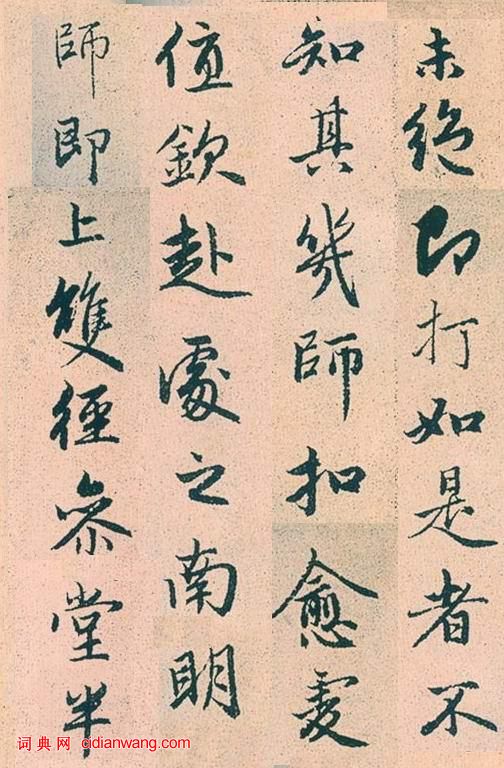 未絕即打如是者不
知其幾師扣愈虔
值欽赴處之南明
師即上雙徑叅堂半
词典网 cidianwang.com